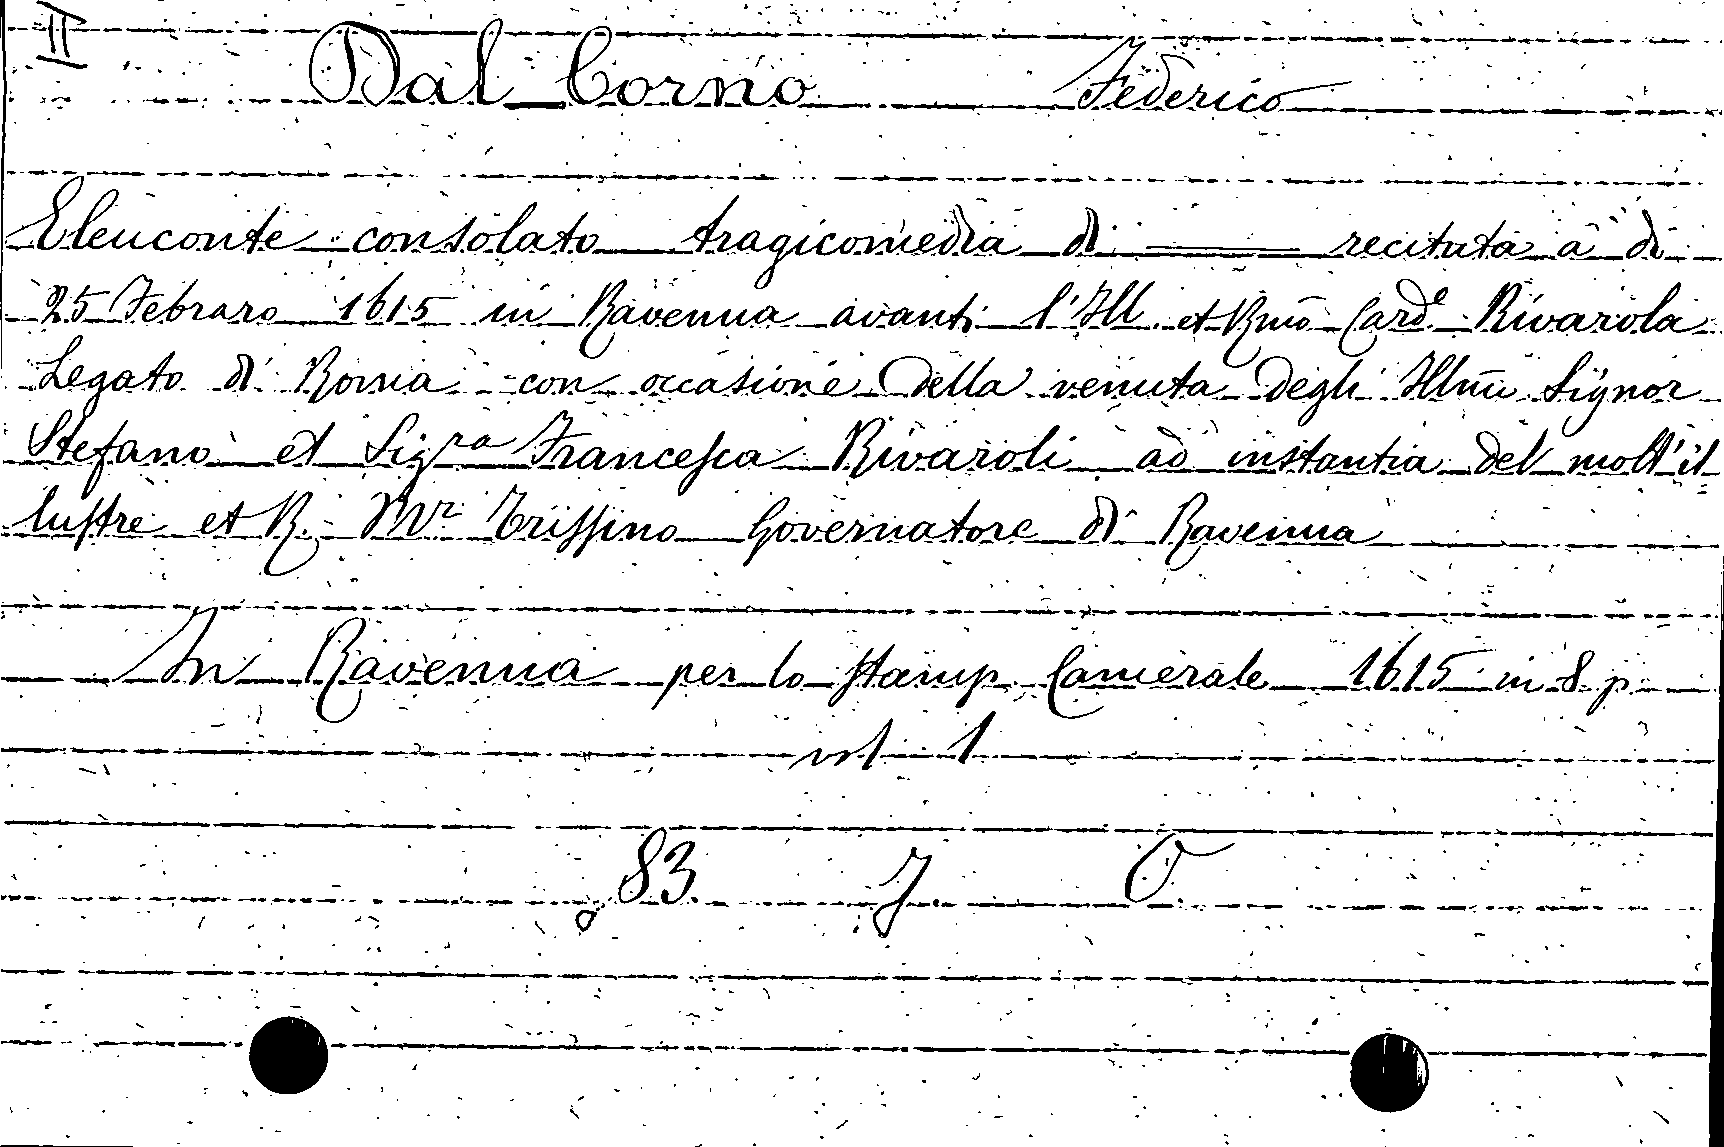 II
Dal Corno Federico
Eleuconte consolato tragicomedia di ——— recitata a di
25 Febraro 1615 in Ravenna avanti l'Ill et Rmo Card.e Rivarola
Legato di Roma con occasione della venuta degli Illmi Signor
Stefano et Sigra Francesca Rivaroli ad instantia del molt'il
lustre et R. Mr Trissino Governatore di Ravenna
In Ravenna per lo stamp. Camerale 1615 in 8 p
vol 1
83. J. O.